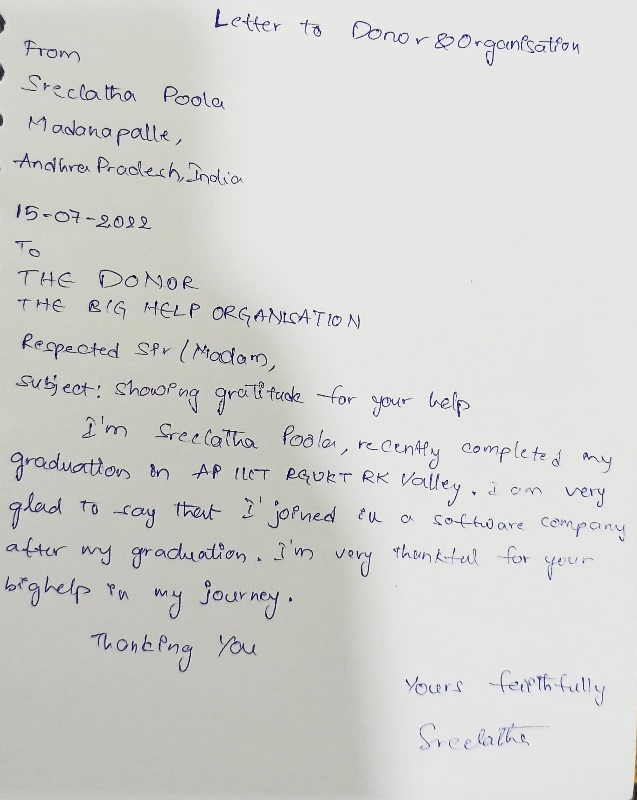 Letter to Donor & Organisation
From
Sreelatha Poola
Madanapalle,
Andhra Pradesh, India
15-07-2022
To
THE DONOR
THE BIG HELP ORGANISATION
Respected Sir / Madam,
subject: showing gratitude for your help
I'm Sreelatha Poola, recently completed my
graduation in AP IIIT RGUKT RK Valley. I am very
glad to say that I' joined in a software company
after my graduation. I'm very thankful for your
bighelp in my journey.
Thanking You
Yours faithfully
Sreelatha